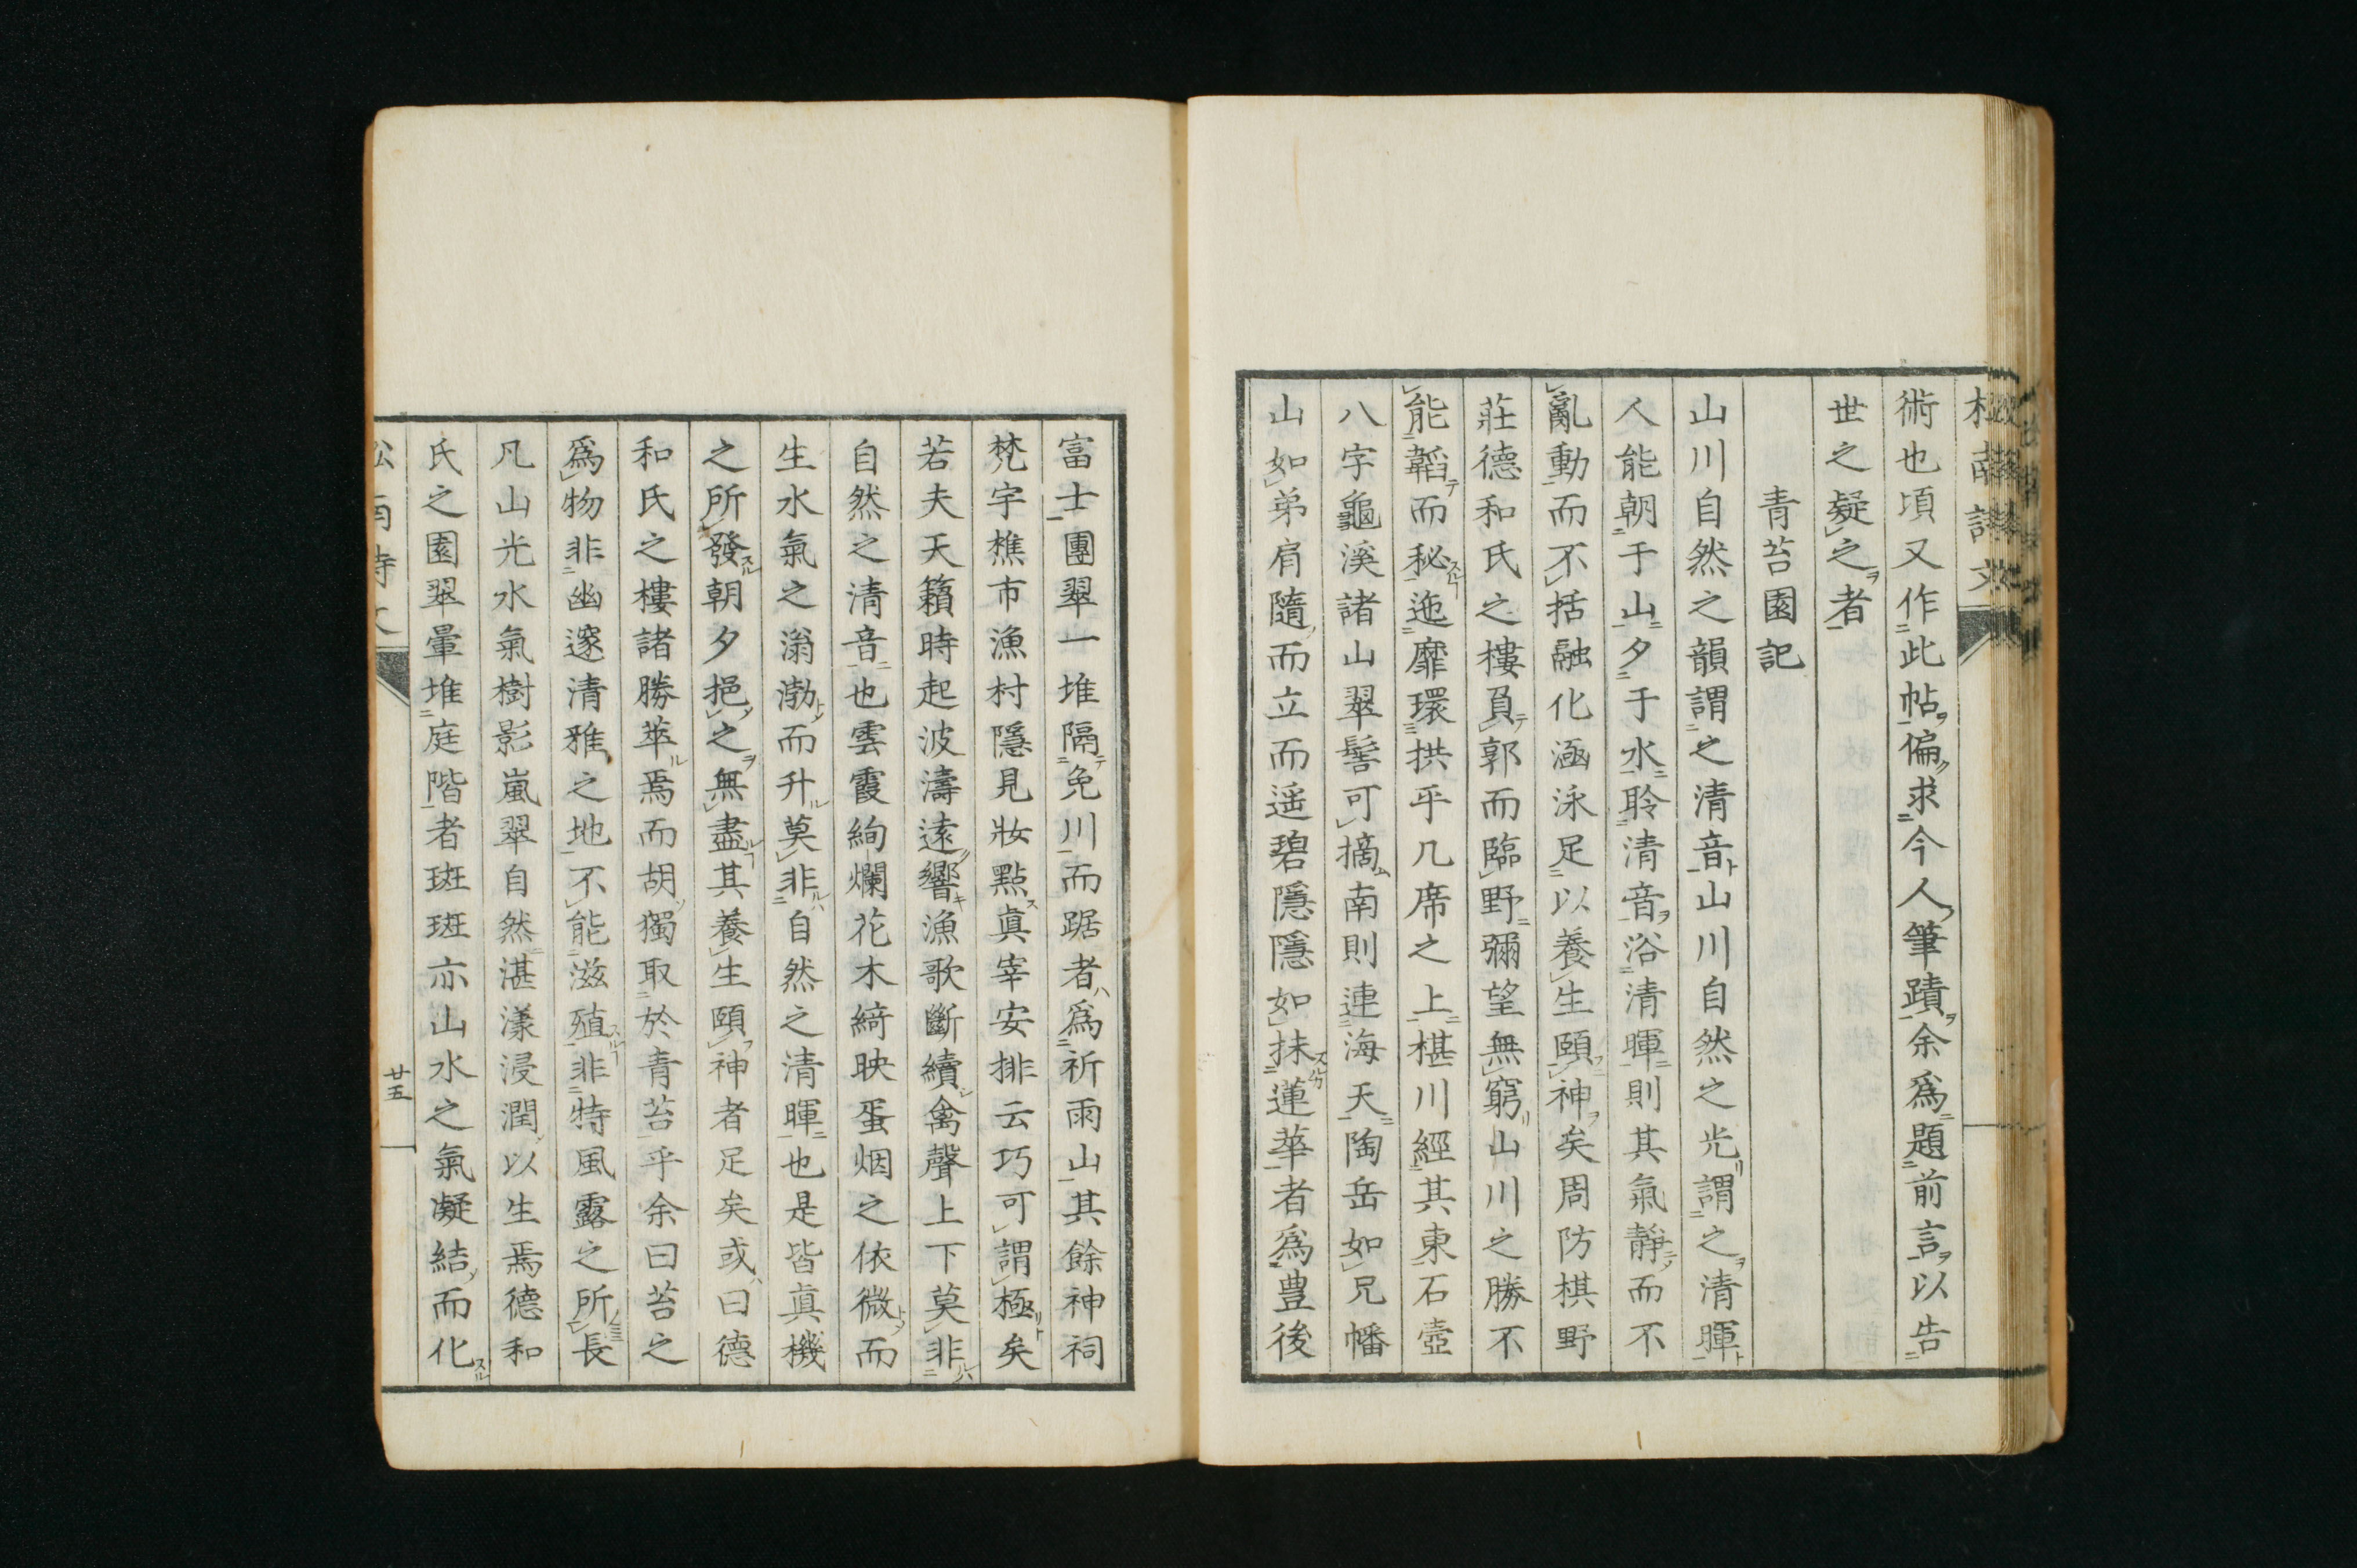 術也頃又作此帖偏求今人筆蹟余爲題前言以告
世之疑之者
青苔園記
山川自然之韻謂之清音山川自然之光謂之清暉
人能朝于山夕于水聆清音浴清暉則其氣靜而不
亂動而不括融化涵泳足以養生頤神矣周防棋野
莊德和氏之樓負郭而臨野彌望無窮山川之勝不
能韜而秘迤靡環拱乎几席之上椹川經其東石壺
八字龜溪諸山翠髻可摘南則連海天陶岳如兄幡
山如弟肩隨而立而遥碧隱隱如抹蓮華者爲豊後
富士團翠一堆隔免川而踞者爲祈雨山其餘神祠
梵宇樵市漁村隱見妝點眞宰安排云巧可謂極矣
若夫天籟時起波濤遠響漁歌斷續禽聲上下莫非
自然之清音也雲霞絢爛花木綺映蛋烟之依微而
生水氣之滃渤而升莫非自然之清暉也是皆眞機
之所發朝夕挹之無盡其養生頤神者足矣或曰德
和氏之樓諸勝萃焉而胡獨取於青苔乎余曰苔之
爲物非幽邃清雅之地不能滋殖非特風露之所長
凡山光水氣樹影嵐翠自然湛漾浸潤以生焉德和
氏之園翠暈堆庭階者斑斑亦山水之氣凝結而化
廿五